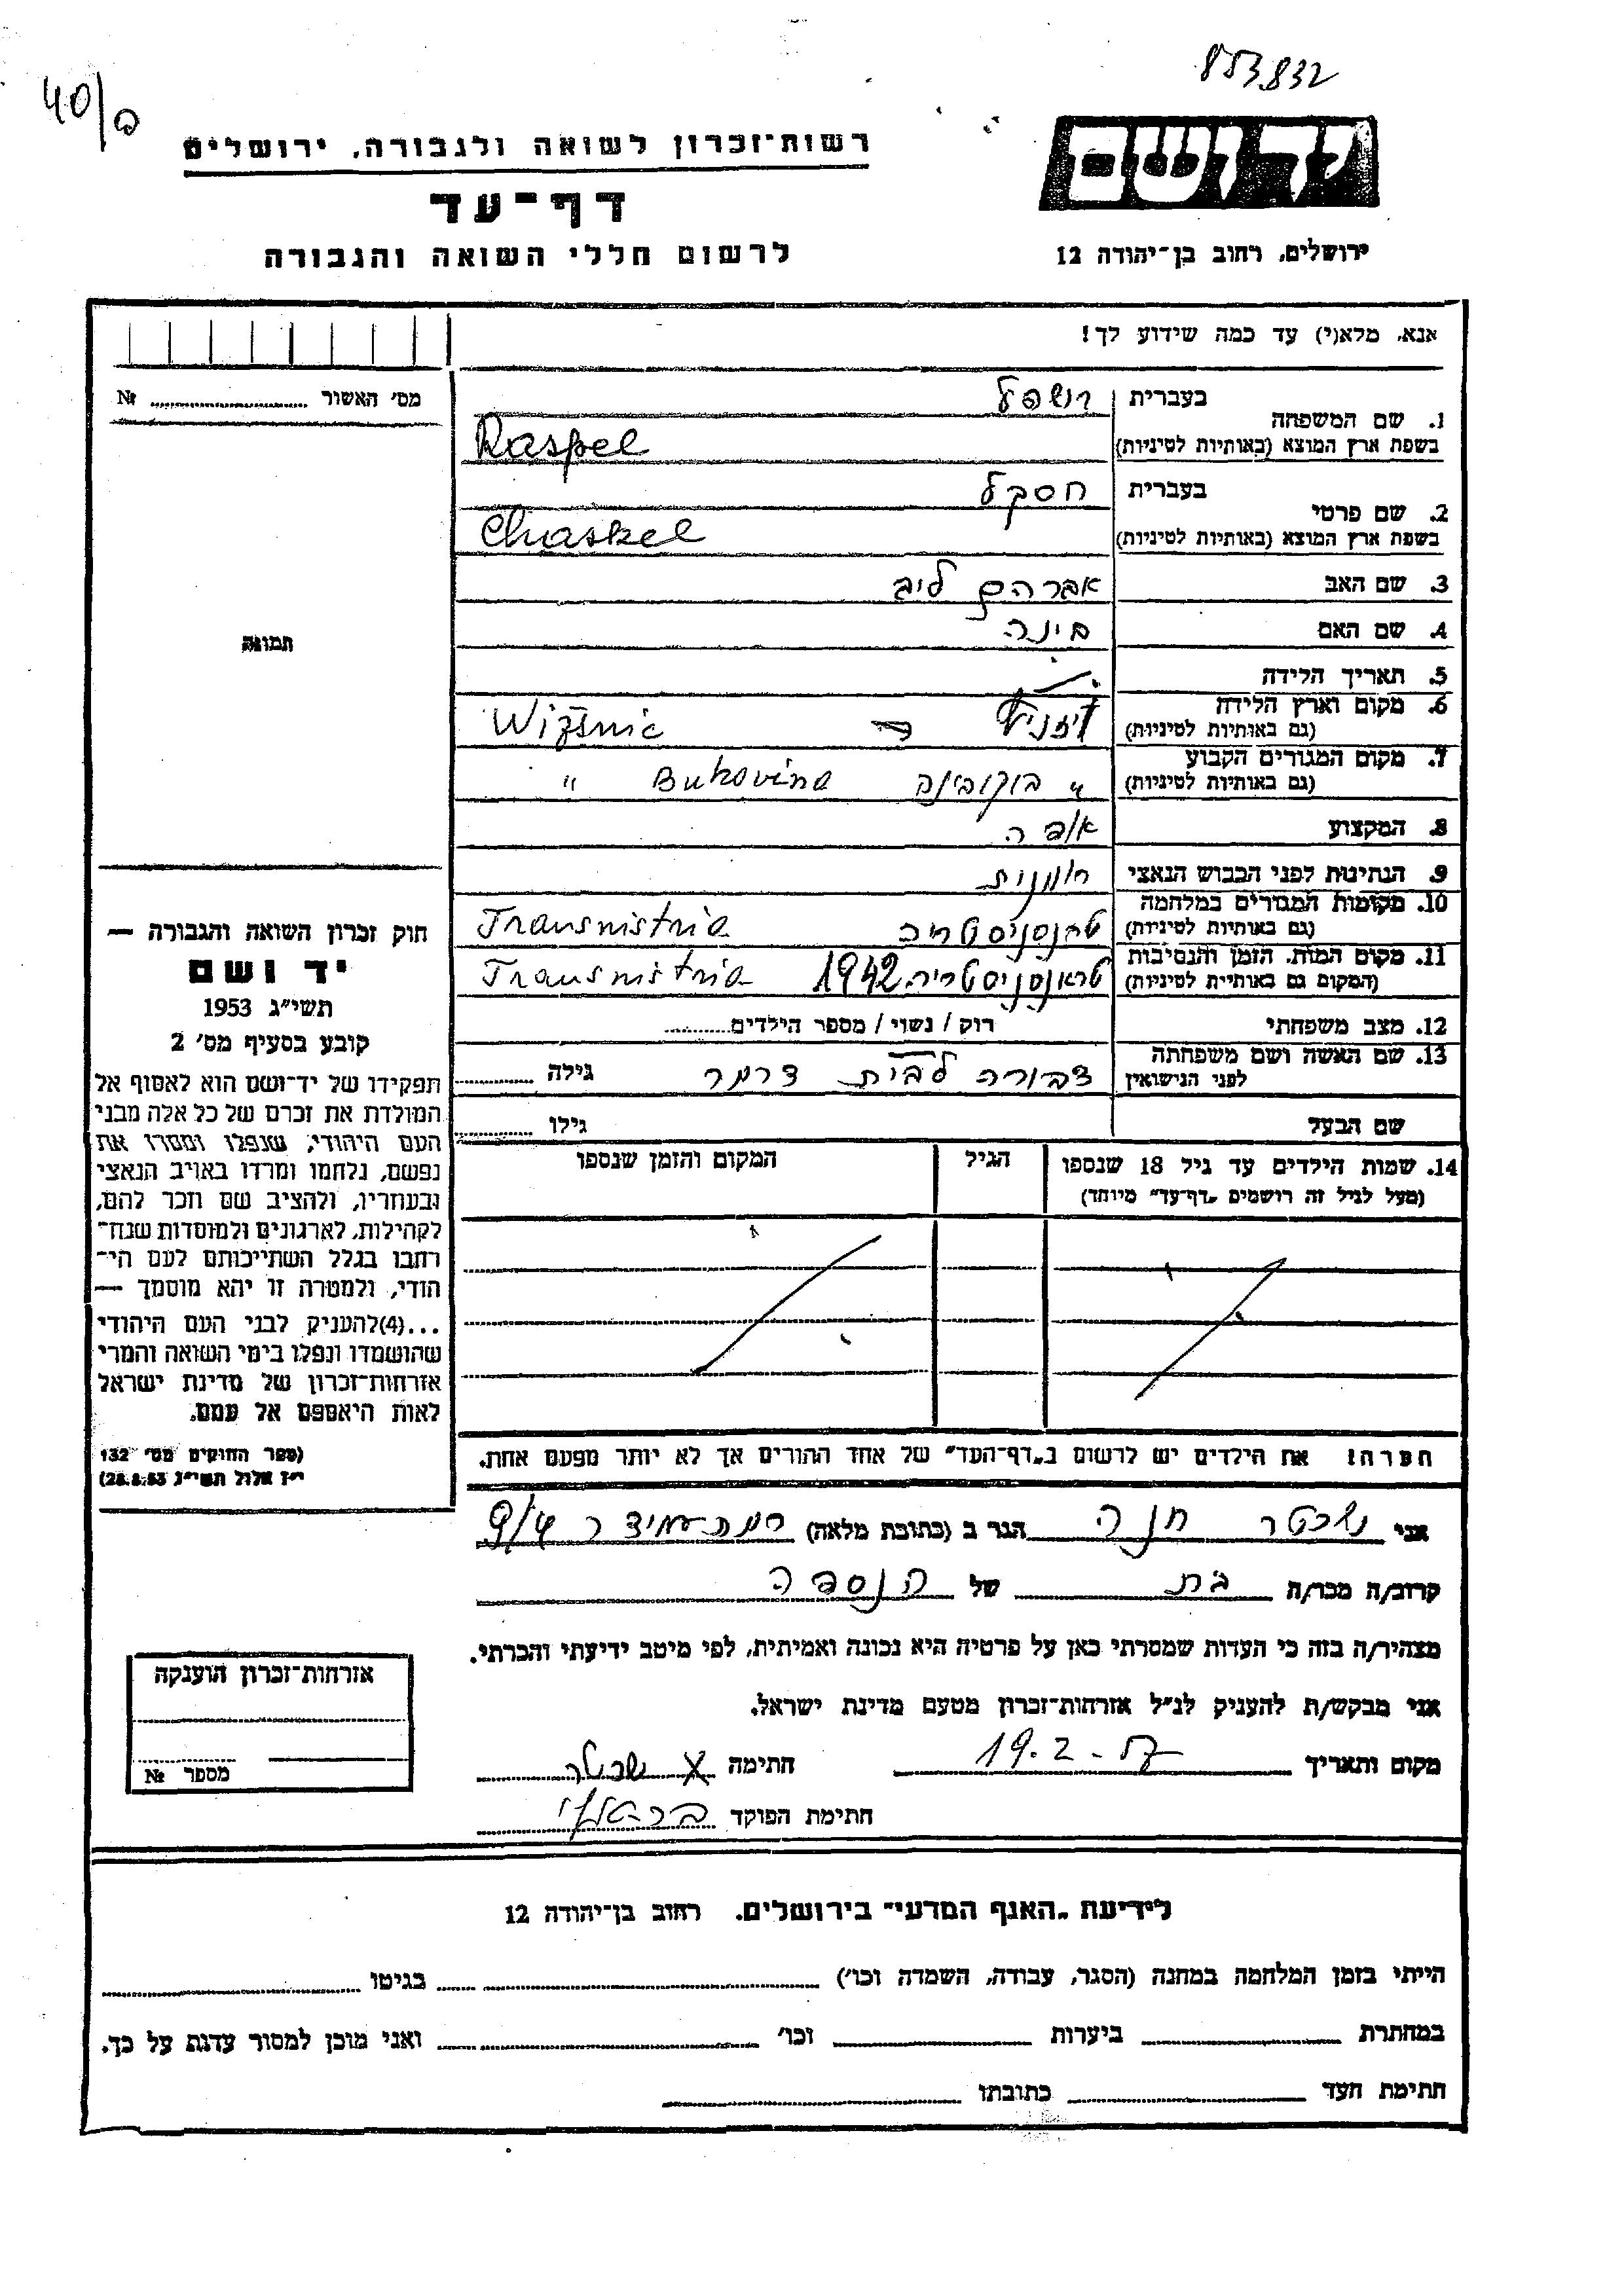 853832
40/ב
יד ושם
רשות־זכרון לשואה ולגבורה, ירושלים
דף־עד
לרשום חללי השואה והגבורה
ירושלים, רחוב בן־יהודה 12
אנא, מלא(י) עד כמה שידוע לך!
מס' האשור № 
תמונה
1. שם המשפחה
בעברית רושפל
בשפת ארץ המוצא (באותיות לטיניות) Raspel
2. שם פרטי
בעברית חסקל
בשפת ארץ המוצא (באותיות לטיניות) Chaskel
3. שם האב אברהם לייב
4. שם האם בינה
5. תאריך הלידה
6. מקום וארץ הלידה
(גם באותיות לטיניות) ויזניץ Wizsnic
7. מקום המגורים הקבוע
(גם באותיות לטיניות) " בוקובינה Bukovina "
8. המקצוע אופה
9. הנתינות לפני הכבוש הנאצי רומנית
10. מקומות המגורים במלחמה
(גם באותיות לטיניות) טרנסניסטריה Transnistria
11. מקום המות, הזמן והנסיבות
(המקום גם באותיית לטיניות) טראנסניסטריה 1942 Transnistria
12. מצב משפחתי רוק / נשוי / מספר הילדים
13. שם האשה ושם משפחתה
לפני הנישואין דבורה לבית דרמר גילה
שם הבעל גילו
14. שמות הילדים עד גיל 18 שנספו הגיל המקום והזמן שנספו
(מעל לגיל זה רושמים „דף־עד" מיוחד)
חוק זכרון השואה והגבורה —
יד ושם
תשי״ג 1953
קובע בסעיף מס' 2
תפקידו של יד־ושם הוא לאסוף אל
המולדת את זכרם של כל אלה מבני
העם היהודי, שנפלו ומסרו את
נפשם, נלחמו ומרדו באויב הנאצי
ובעוזריו, ולהציב שם וזכר להם,
לקהילות, לארגונים ולמוסדות שנח־
רחבו בגלל השתייכותם לעם הי־
הודי, ולמטרה זו יהא מוסמך —
...(4)להעניק לבני העם היהודי
שהושמדו ונפלו בימי השואה והמרי
אזרחות־זכרון של מדינת ישראל
לאות היאספם אל עמם.
(ספר החוקים מס' 132
י״ז אלול תשי״ג 28.8.53)
הערה: את הילדים יש לרשום ב„דף־העד" של אחד ההורים אך לא יותר מפעם אחת.
אני שכטר חנה הגר ב (כתובת מלאה) רמת עמידר 9/4
קרוב/ה מכר/ה בת של הנספה
מצהיר/ה בזה כי העדות שמסרתי כאן על פרטיה היא נכונה ואמיתית, לפי מיטב ידיעתי והכרתי.
אני מבקש/ת להעניק לנ״ל אזרחות־זכרון מטעם מדינת ישראל.
מקום ותאריך 19.2.57 חתימה X שכטר
חתימת הפוקד
אזרחות־זכרון הוענקה
מספר №
לידיעת „האגף המדעי" בירושלים, רחוב בן־יהודה 12
הייתי בזמן המלחמה במחנה (הסגר, עבודה, השמדה וכו') בגיטו
במחתרת ביערות וכו' ואני מוכן למסור עדות על כך.
חתימת העד כתובתו